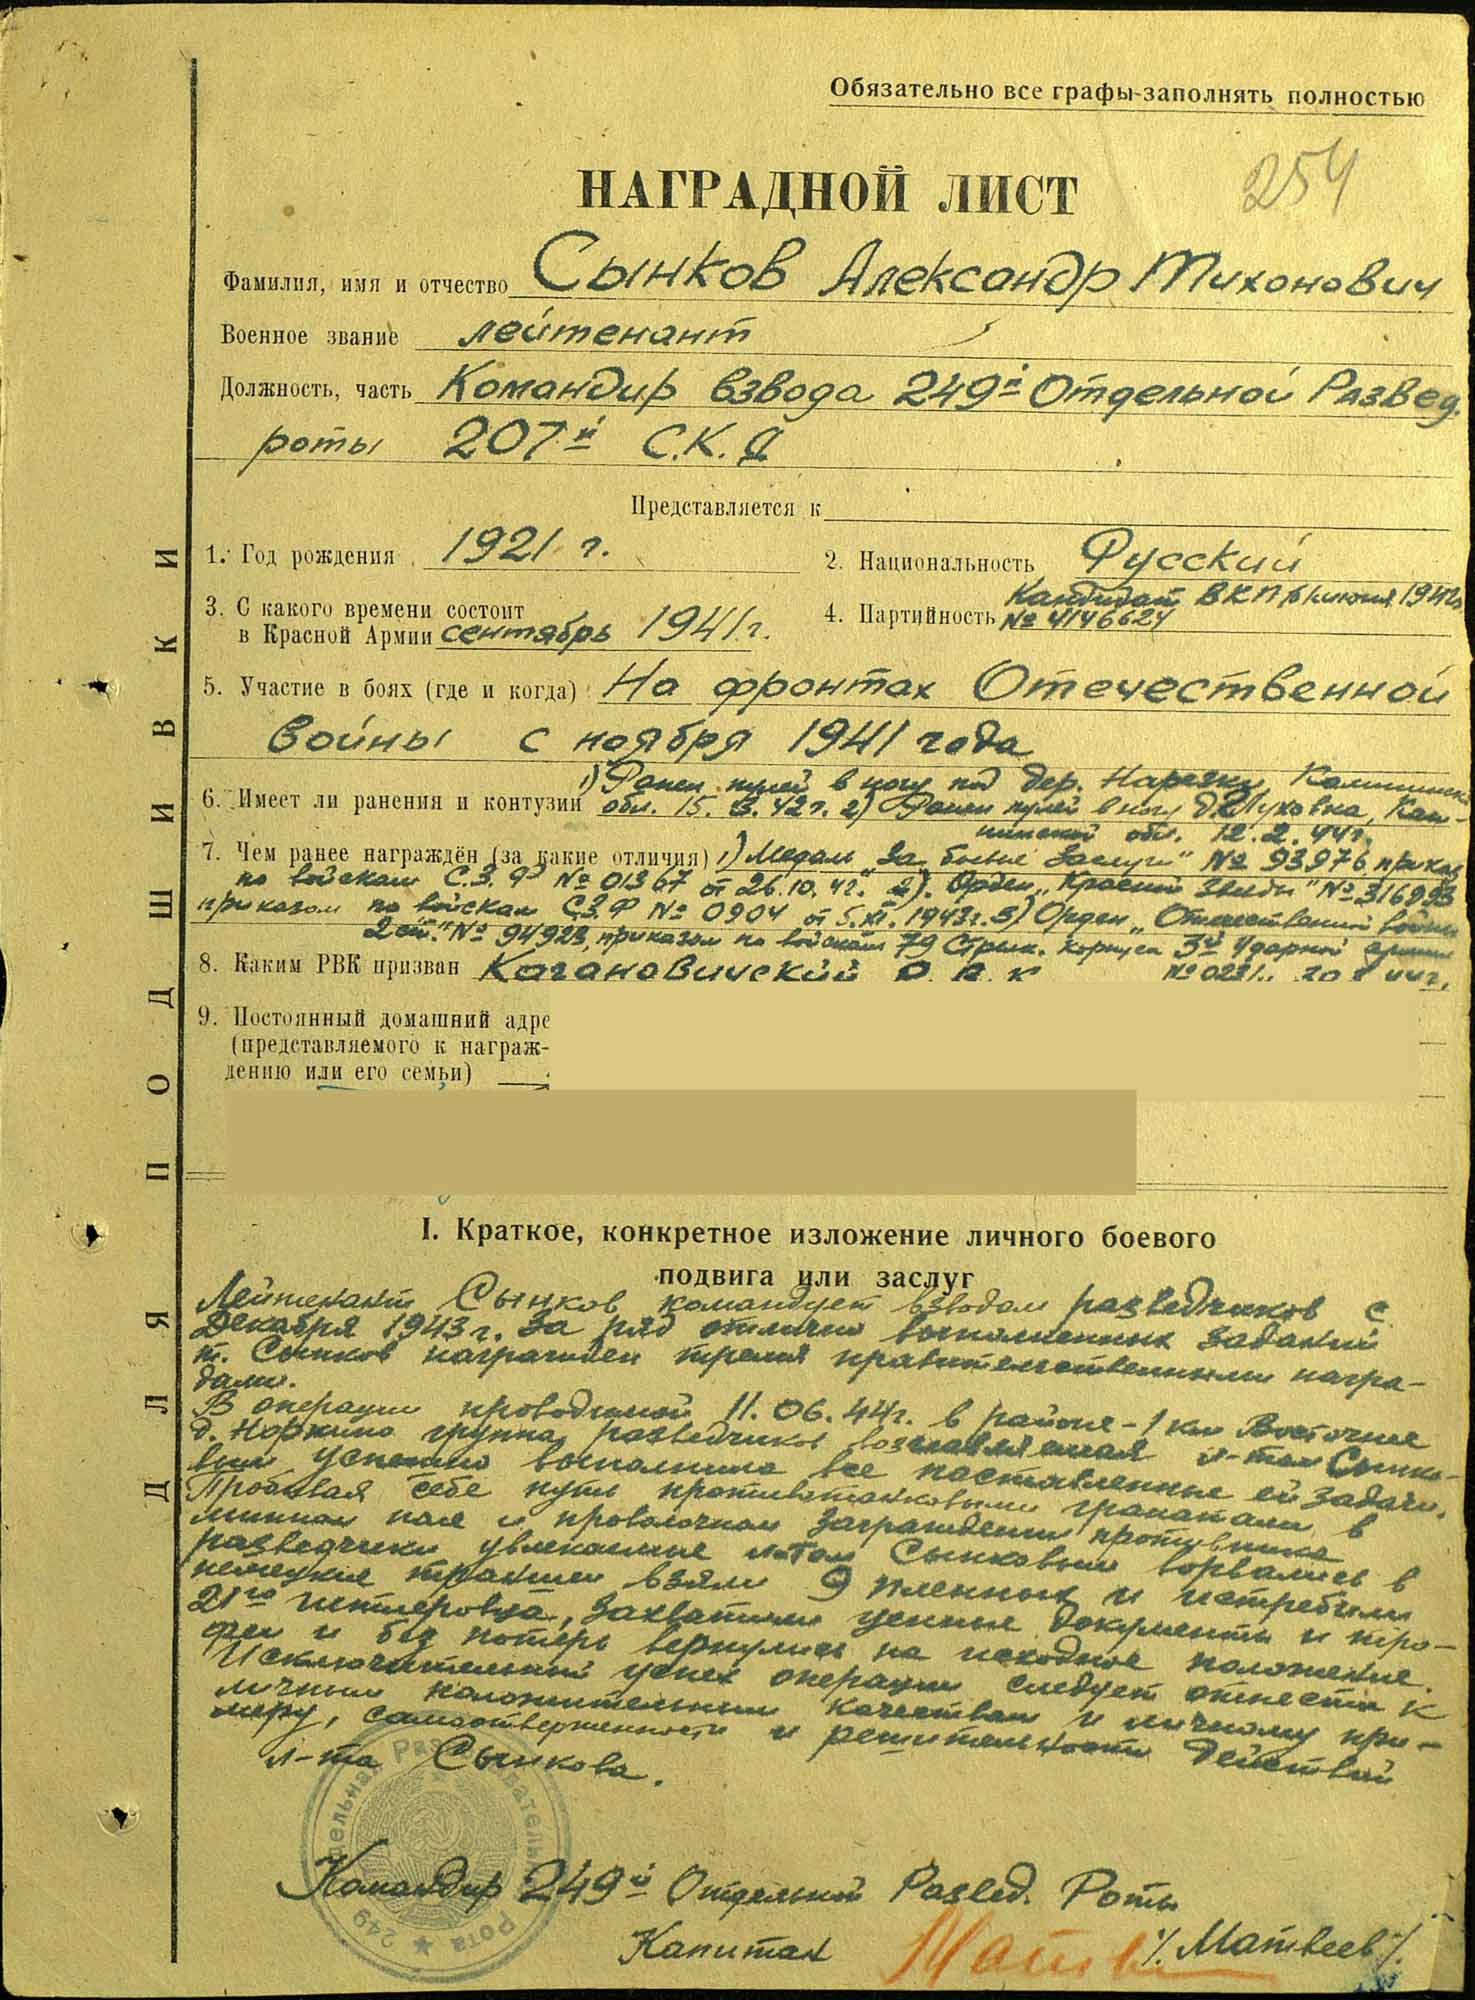 Обязательно все графы заполнять полностью
254
НАГРАДНОЙ ЛИСТ
Фамилия, имя и отчество Сынков Александр Тихонович
Военное звание лейтенант
Должность, часть Командир взвода 249й Отдельной Развед.
роты 207й С.К.Д
Представляется к
1. Год рождения 1921 г.
2. Национальность Русский
3. С какого времени состоит
в Красной Армии сентябрь 1941г.
4. Партийность Кандидат ВКП/б/ июня 1942г
№ 4146624
5. Участие в боях (где и когда) На фронтах Отечественной
войны с ноября 1941 года
6. Имеет ли ранения и контузии 1) Ранен пулей в ногу под дер. Калининск
обл. 15. 42г. 2) Ранен пулей в ногу д. Луховна, Кали-
нинской обл. 12.2.44г.
7. Чем ранее награждён (за какие отличия) 1) Медаль „За боевые заслуги" № 93976 приказ
по войскам С.З.Ф № 01367 от 26.10.42г. 2). Орден „Красной Звезды" № 316893
приказом по войскам С.З.Ф № 0904 от 5.XI.1943г. 3) Орден „Отечественной войны
2 ст." № 94923, приказом по войскам 79 Стрелк. корпуса 3й Ударной армии
8. Каким РВК призван Кагановичский Р.В.К
9. Постоянный домашний адре
(представляемого к награж-
дению или его семьи)
ДЛЯ ПОДШИВКИ
I. Краткое, конкретное изложение личного боевого
подвига или заслуг
Лейтенант Сынков командует взводом разведчиков с
Декабря 1943г. За ряд отлично выполненных заданий
т. Сынков награжден тремя правительственными награ-
дами.
В операции проводимой 11.06.44г. в районе - 1 км Восточнее
д. Норкино группа разведчиков возглавляемая л-том Сынко-
вым успешно выполнила все поставленные ей задачи.
Пробивая себе путь противотанковыми гранатами в
минном поле и проволочном заграждении противника
разведчики увлекаемые л-том Сынковым ворвались в
немецкие траншеи взяли 9 пленных и истребили
21го гитлеровца, захватили ценные документы и тро-
феи и без потерь вернулись на исходное положение.
Исключительный успех операции следует отнести к
личным положительным качествам и личному при-
меру, самоотверженности и решительности действий
л-та Сынкова.
Командир 249й Отдельной Развед. Роты
Капитан /Матвеев/
249 Отдельная Разведывательная Рота